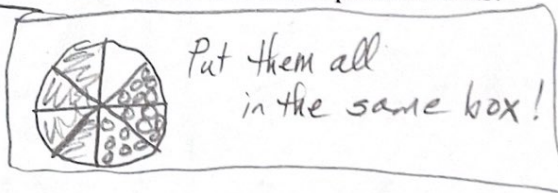 Put them all
in the same box!